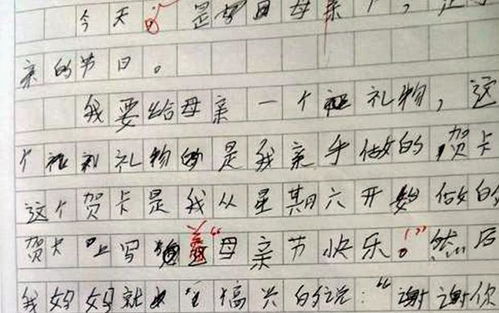 今天是母亲节,
亲的节日。
我要给母亲一个礼物,这
个礼物的是我亲手做的贺卡
这个贺卡是我从星期六开始做的
贺卡上写母亲节快乐!”然后
我妈妈就搞兴的说:“谢谢你